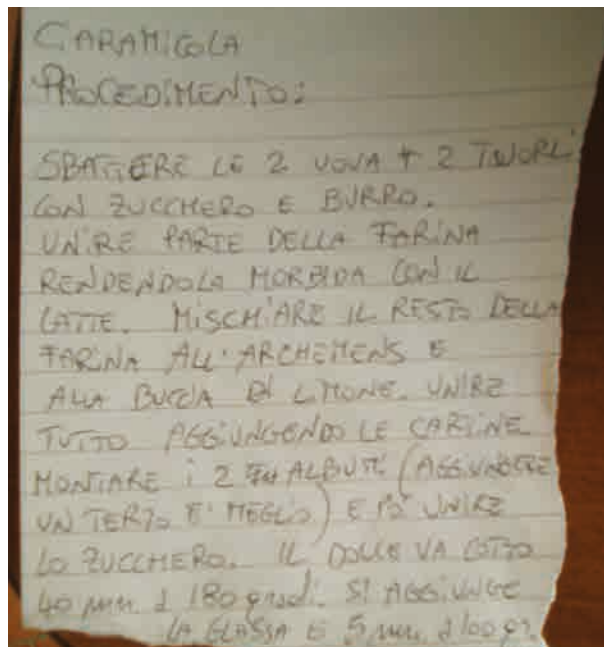 CARAMICOLA
PROCEDIMENTO:
SBATTERE LE 2 UOVA + 2 TUORLI
CON ZUCCHERO E BURRO.
UNIRE PARTE DELLA FARINA
RENDENDOLA MORBIDA CON IL
LATTE. MISCHIARE IL RESTO DELLA
FARINA ALL'ARCHEMENS E
ALLA BUCCIA DI LIMONE. UNIRE
TUTTO AGGIUNGENDO LE CARTINE
MONTARE i 2 ALBUMI (AGGIUNGERE
UN TERZO E' MEGLIO) E PO' UNIRE
LO ZUCCHERO. IL DOLCE VA COTTO
40 min. a 180 gradi. SI AGGIUNGE
LA GLASSA E 5 min. a 100 gr.